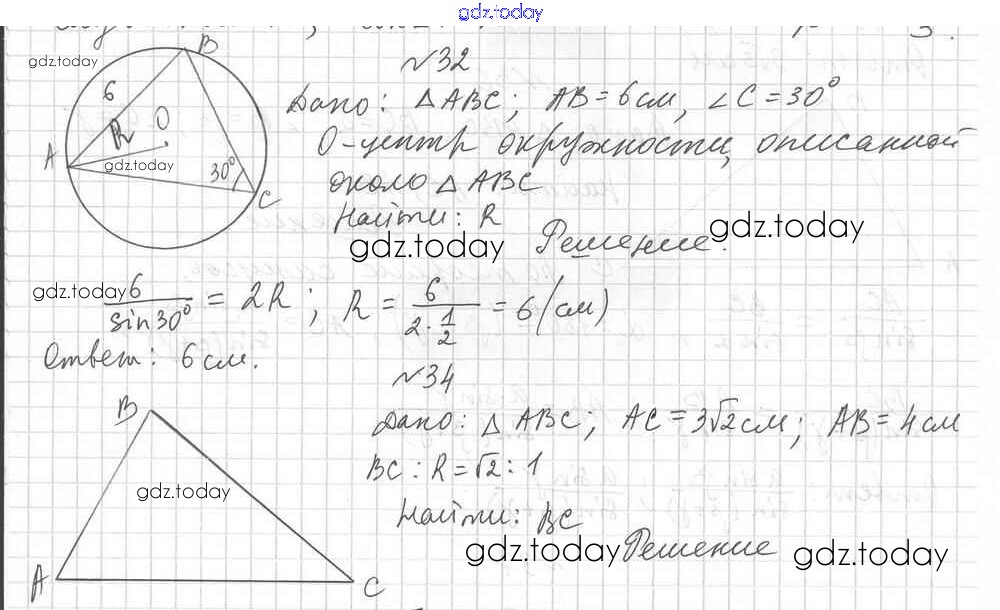 gdz.today
№32
gdz.today
B
6
Дано: △ABC; AB = 6 см, ∠C = 30°
R O
O-центр окружности, описанной
A
gdz.today
30°
около △ABC
C
Найти: R
gdz.today
Решение:
gdz.today
gdz.today
6/sin30° = 2R; R = 6/(2·1/2) = 6 (см)
Ответ: 6 см.
№34
B
Дано: △ABC; AC = 3√2 см; AB = 4 см
BC : R = √2 : 1
gdz.today
Найти: BC
gdz.today
Решение
gdz.today
A
C